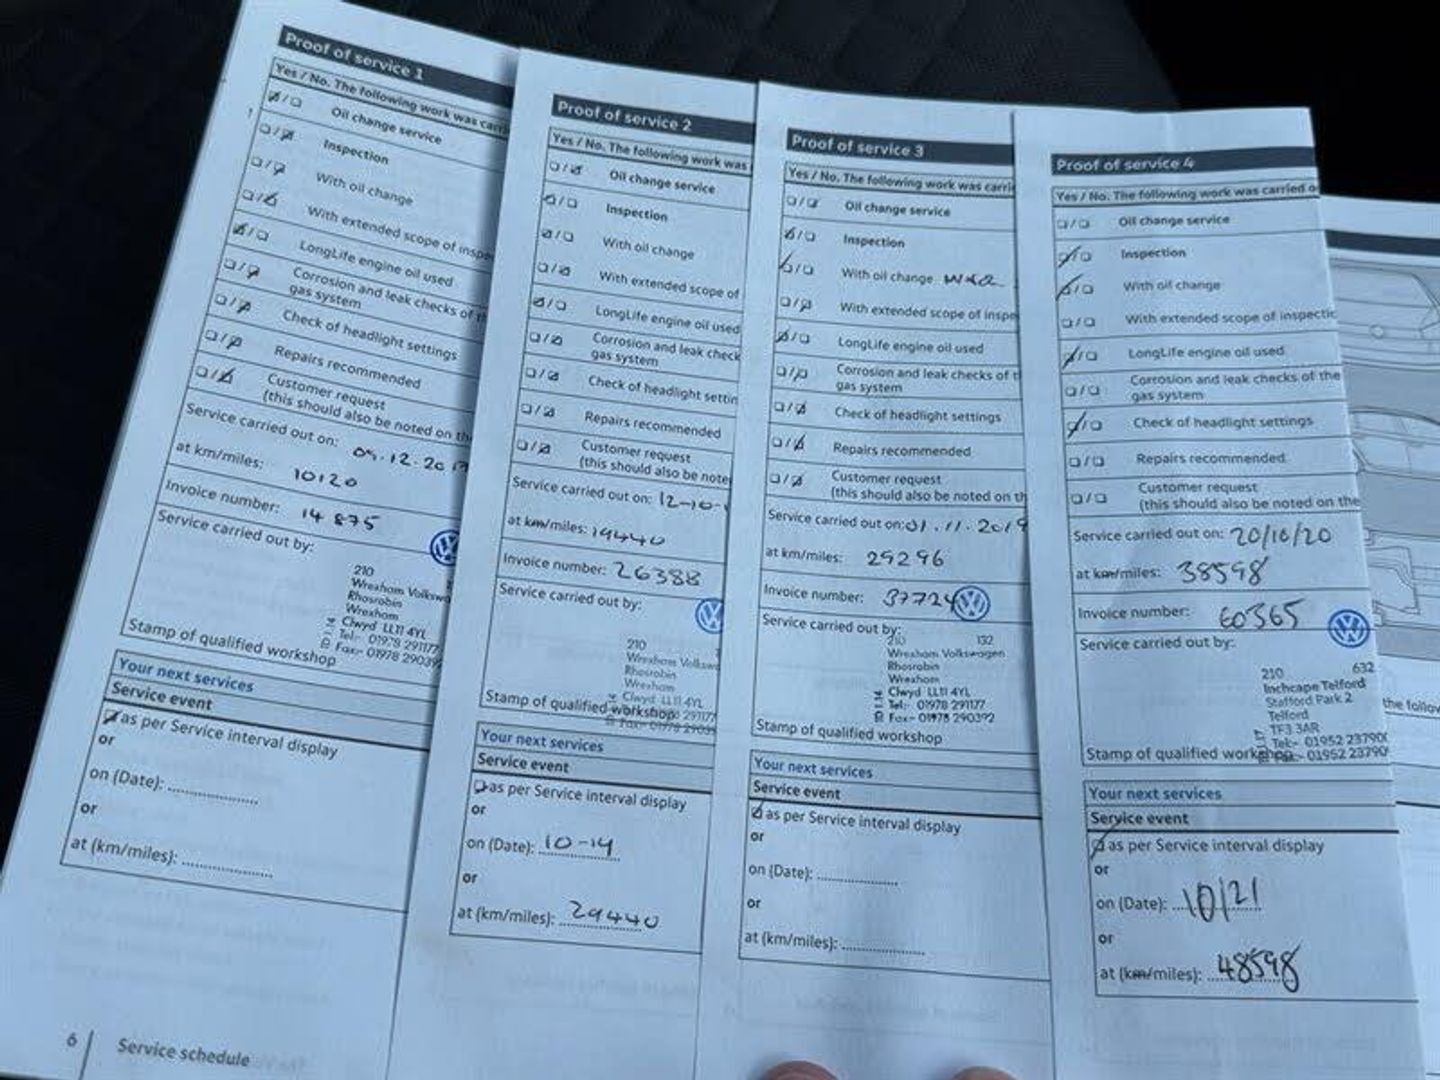 Proof of service 1
Yes / No. The following work was carri
Oil change service
Inspection
With oil change
With extended scope of inspe
LongLife engine oil used
Corrosion and leak checks of t
gas system
Check of headlight settings
Repairs recommended
Customer request
(this should also be noted on th
Service carried out on: 05.12.201
at km/miles: 10120
Invoice number: 14875
Service carried out by:
210
Wrexham Volkswa
Rhosrobin
Wrexham
Clwyd LL11 4YL
Tel:- 01978 291177
Fax:- 01978 29039
Stamp of qualified workshop
Your next services
Service event
as per Service interval display
or
on (Date): ..................
or
at (km/miles): ..................
6 | Service schedule
Proof of service 2
Yes / No. The following work was
Oil change service
Inspection
With oil change
With extended scope of
LongLife engine oil used
Corrosion and leak check
gas system
Check of headlight settin
Repairs recommended
Customer request
(this should also be note
Service carried out on: 12-10-
at km/miles: 19440
Invoice number: 26388
Service carried out by:
210
Wrexham Volksw
Rhosrobin
Wrexham
Clwyd LL11 4YL
Stamp of qualified workshop
Your next services
Service event
as per Service interval display
or
on (Date): 10-19
or
at (km/miles): 29440
Proof of service 3
Yes / No. The following work was carri
Oil change service
Inspection
With oil change
With extended scope of inspe
LongLife engine oil used
Corrosion and leak checks of t
gas system
Check of headlight settings
Repairs recommended
Customer request
(this should also be noted on th
Service carried out on: 01.11.2019
at km/miles: 29296
Invoice number: 37724
Service carried out by:
210 132
Wrexham Volkswagen
Rhosrobin
Wrexham
Clwyd LL11 4YL
Tel:- 01978 291177
Fax:- 01978 290392
Stamp of qualified workshop
Your next services
Service event
as per Service interval display
or
on (Date): ..................
or
at (km/miles): ..................
Proof of service 4
Yes / No. The following work was carried o
Oil change service
Inspection
With oil change
With extended scope of inspectio
LongLife engine oil used
Corrosion and leak checks of the
gas system
Check of headlight settings
Repairs recommended
Customer request
(this should also be noted on the
Service carried out on: 20/10/20
at km/miles: 38598
Invoice number: 60365
Service carried out by:
210 632
Inchcape Telford
Stafford Park 2
Telford
TF3 3AR
Tel:- 01952 23790
Fax:- 01952 23790
Stamp of qualified workshop
Your next services
Service event
as per Service interval display
or
on (Date): 10/21
or
at (km/miles): 48598
the follow